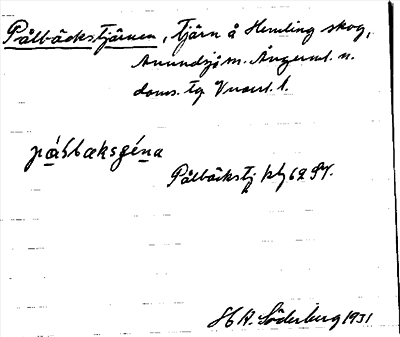 Pålbäckstjärnen, tjärn å Hemling skog,
Anundsjö sn. Ångerml. n.
doms. tg Vnorrl. l.
pálbæksɕéna
Pålbäckstj ktbl 62 SV.
H A. Söderberg 1931